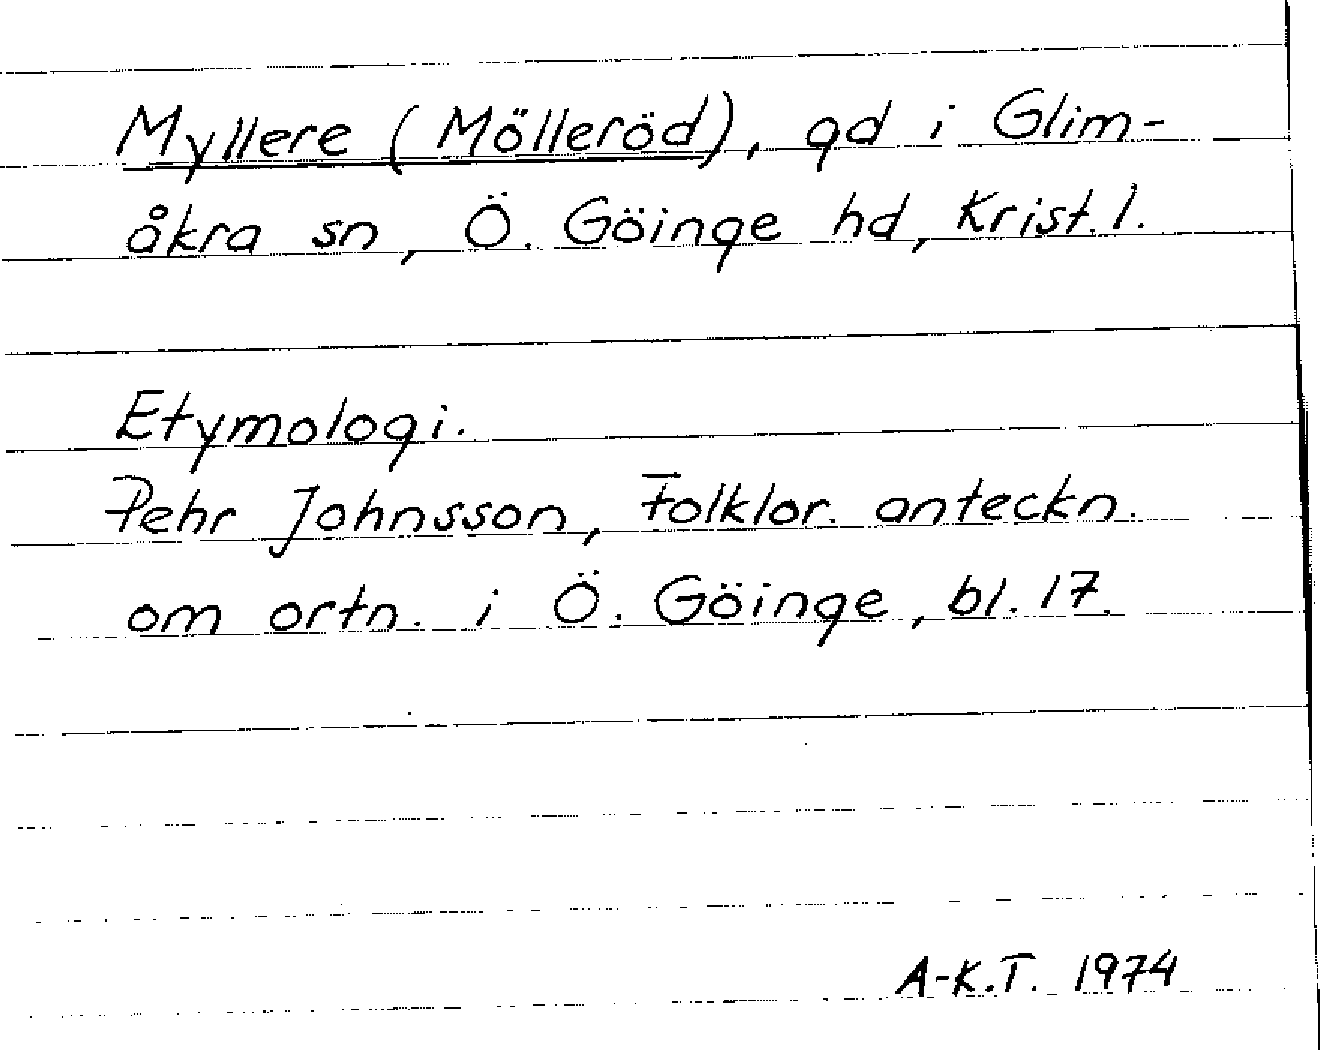 Myllere (Mölleröd), gd i Glim-
åkra sn, Ö. Göinge hd, Krist. l.
Etymologi.
Pehr Johnsson, Folklor. anteckn.
om ortn. i Ö. Göinge, bl. 17.
A-K.T. 1974